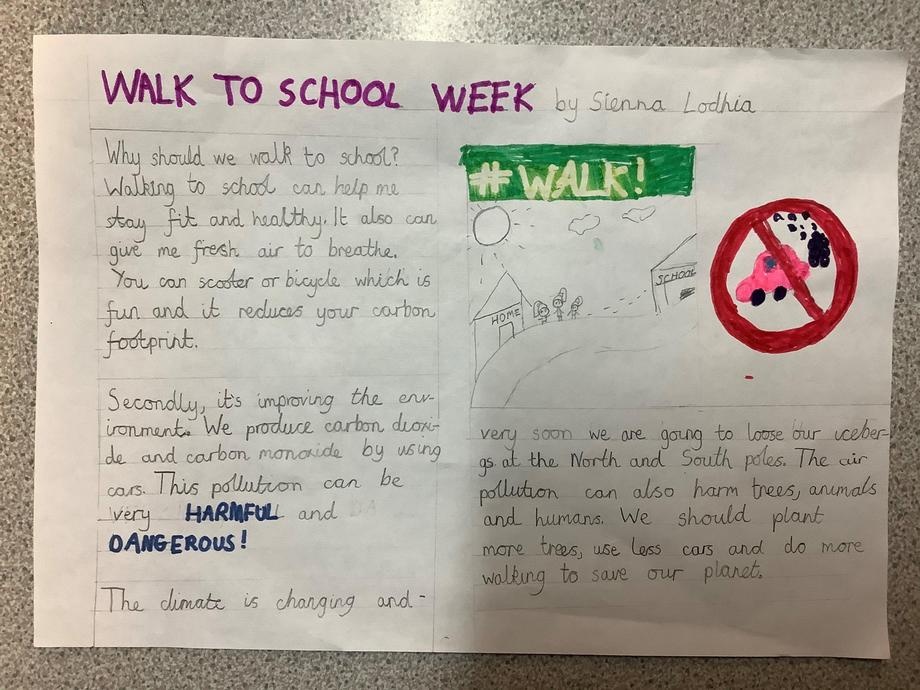 WALK TO SCHOOL WEEK by Sienna Lodhia
Why should we walk to school?
Walking to school can help me
stay fit and healthy. It also can
give me fresh air to breathe.
You can scooter or bicycle which is
fun and it reduces your carbon
footprint.
Secondly, it's improving the env-
ironment. We produce carbon dioxi-
de and carbon monoxide by using
cars. This pollution can be
very HARMFUL and
DANGEROUS!
The climate is changing and-
# WALK!
HOME
SCHOOL
very soon we are going to loose our iceber-
gs at the North and South poles. The air
pollution can also harm trees, animals
and humans. We should plant
more trees, use less cars and do more
walking to save our planet.